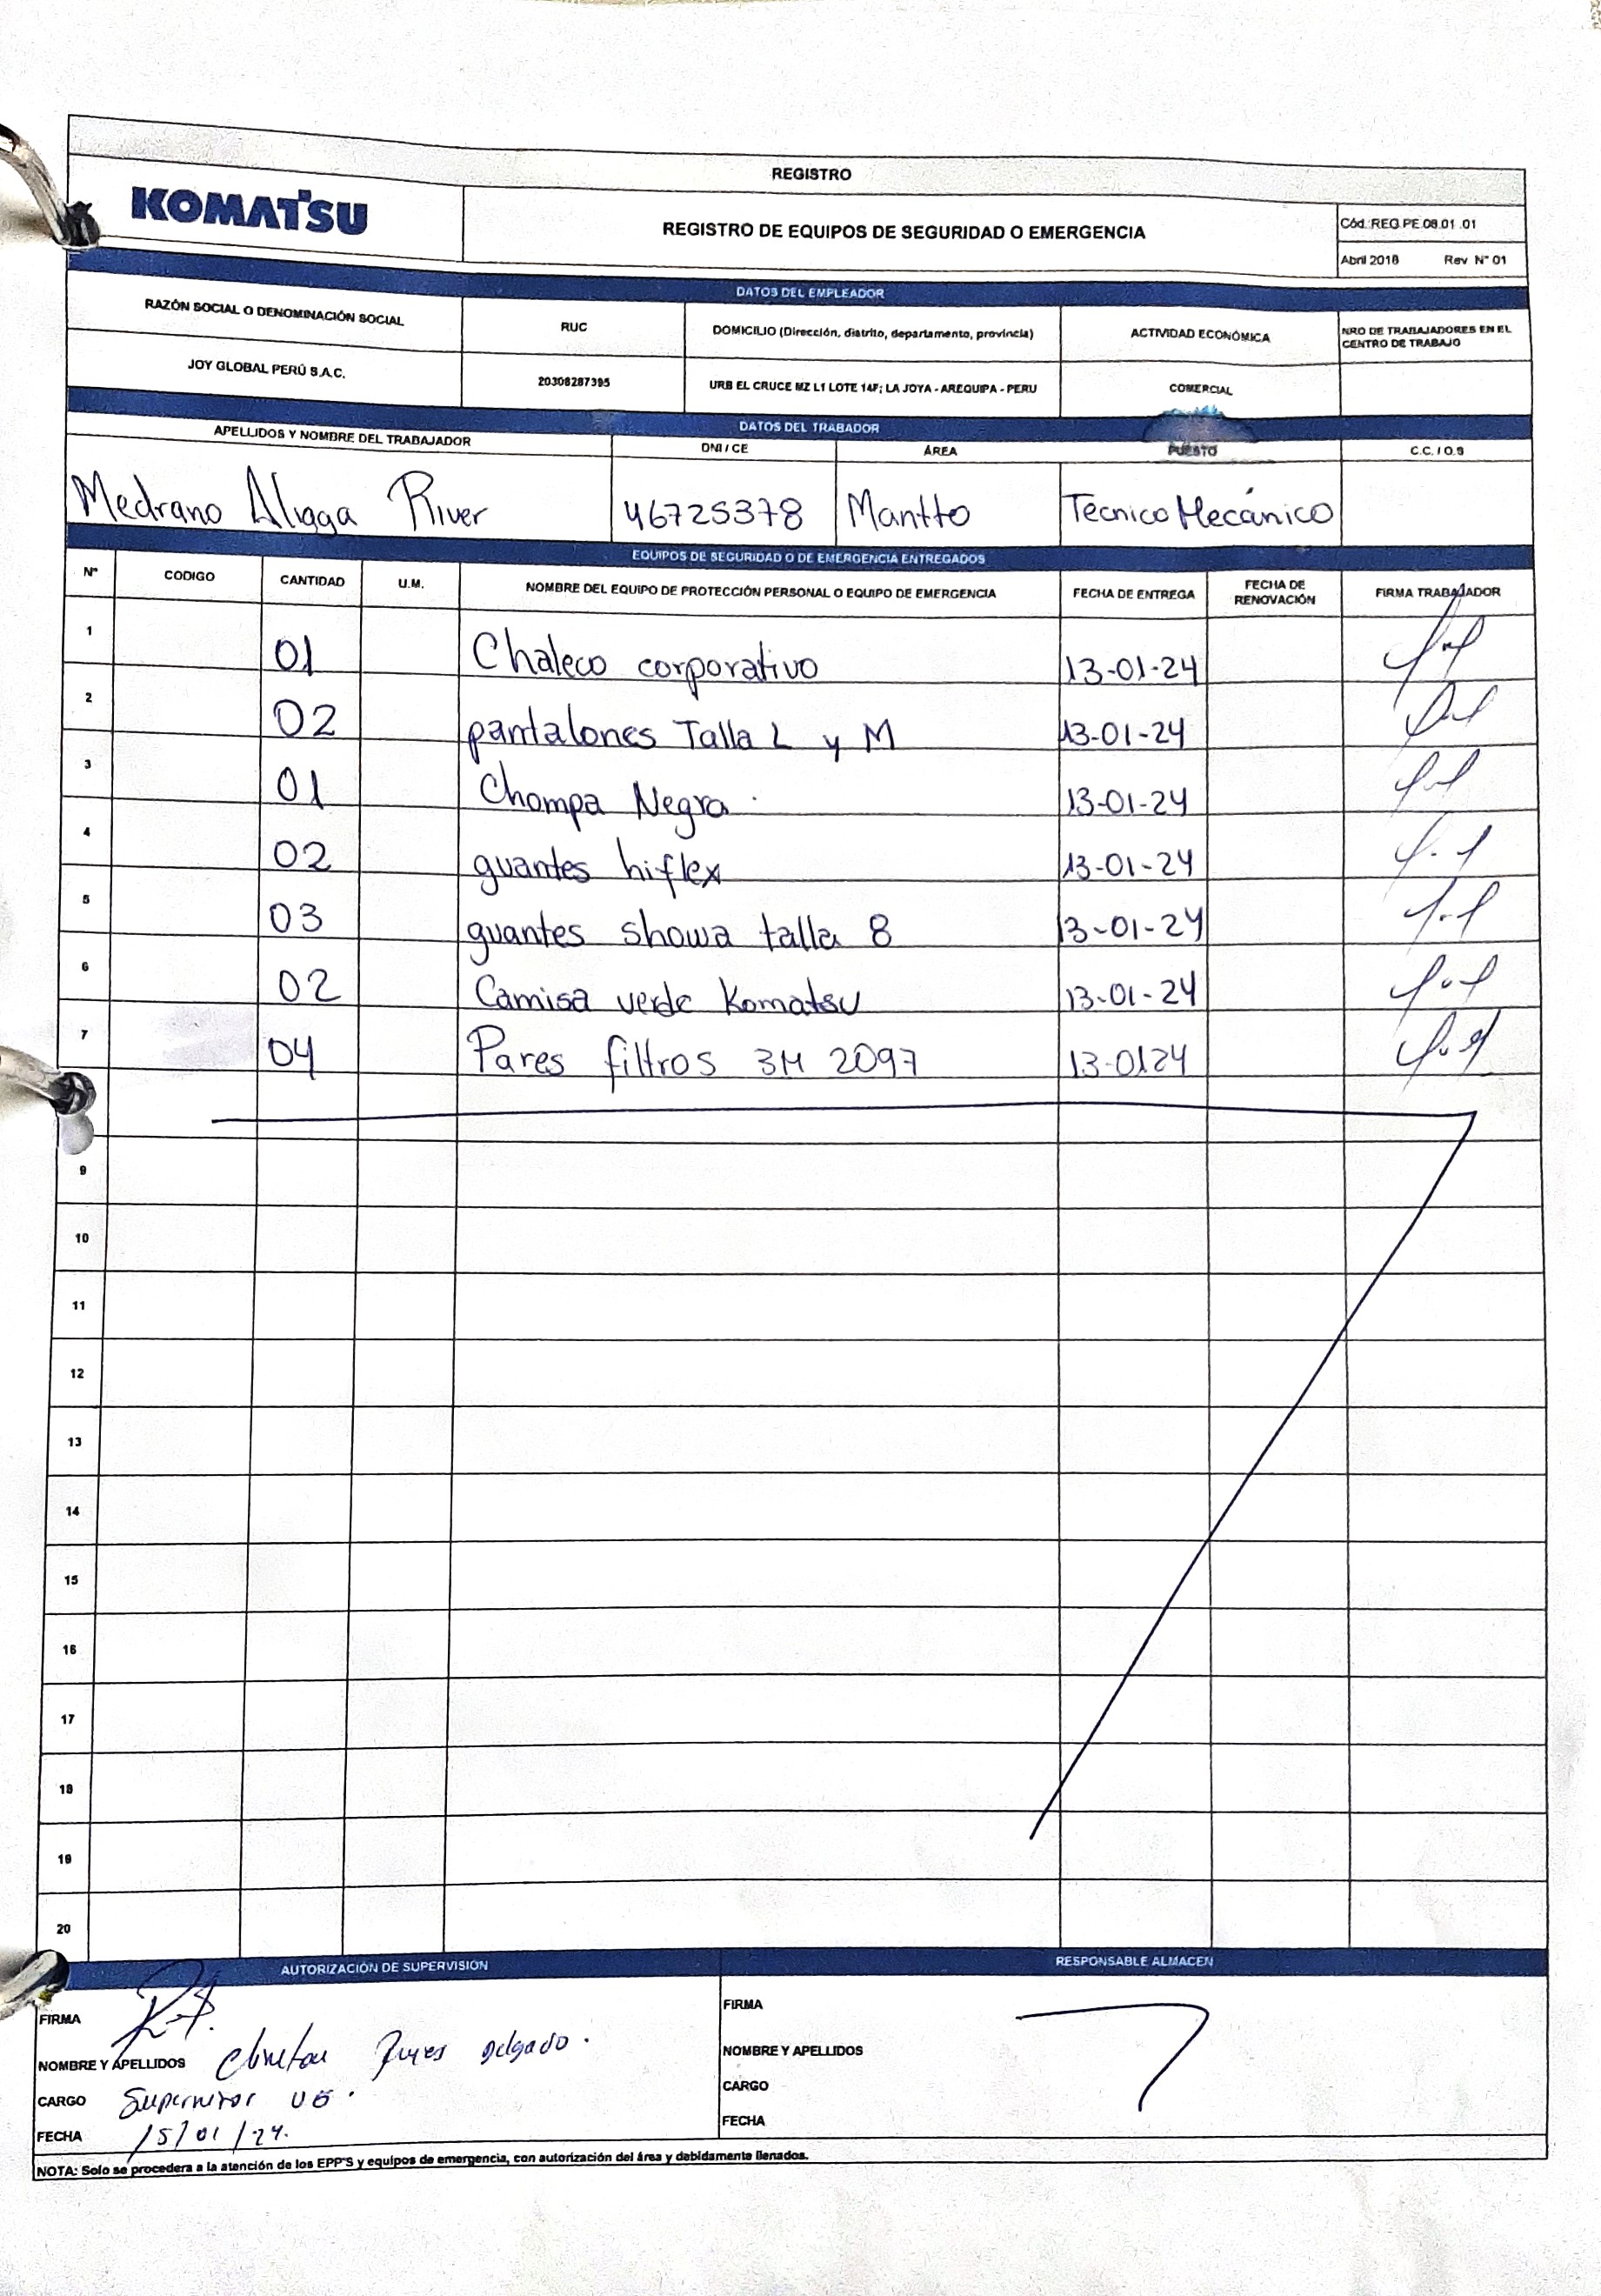 REGISTRO
KOMATSU
REGISTRO DE EQUIPOS DE SEGURIDAD O EMERGENCIA
Cód.:REG.PE.08.01 .01
Abril 2018 Rev N° 01
DATOS DEL EMPLEADOR
RAZÓN SOCIAL O DENOMINACIÓN SOCIAL RUC DOMICILIO (Dirección, distrito, departamento, provincia) ACTIVIDAD ECONÓMICA NRO DE TRABAJADORES EN EL CENTRO DE TRABAJO
JOY GLOBAL PERÚ S.A.C. 20308287395 URB EL CRUCE MZ L1 LOTE 14F; LA JOYA - AREQUIPA - PERU COMERCIAL
DATOS DEL TRABADOR
APELLIDOS Y NOMBRE DEL TRABAJADOR DNI / CE ÁREA PUESTO C.C. / O.S
Medrano Aliaga River 46725378 Mantto Técnico Mecánico
EQUIPOS DE SEGURIDAD O DE EMERGENCIA ENTREGADOS
N° CODIGO CANTIDAD U.M. NOMBRE DEL EQUIPO DE PROTECCIÓN PERSONAL O EQUIPO DE EMERGENCIA FECHA DE ENTREGA FECHA DE RENOVACIÓN FIRMA TRABAJADOR
1 01 Chaleco corporativo 13-01-24
2 02 pantalones Talla L y M 13-01-24
3 01 Chompa Negra 13-01-24
4 02 guantes hiflex 13-01-24
5 03 guantes showa talla 8 13-01-24
6 02 Camisa verde Komatsu 13-01-24
7 04 Pares filtros 3M 2097 13-0124
9
10
11
12
13
14
15
16
17
18
19
20
AUTORIZACIÓN DE SUPERVISIÓN RESPONSABLE ALMACEN
FIRMA FIRMA
NOMBRE Y APELLIDOS Delgado. NOMBRE Y APELLIDOS
CARGO Supervisor CARGO
FECHA 15/01/24. FECHA
NOTA: Solo se procedera a la atención de los EPP'S y equipos de emergencia, con autorización del área y debidamente llenados.